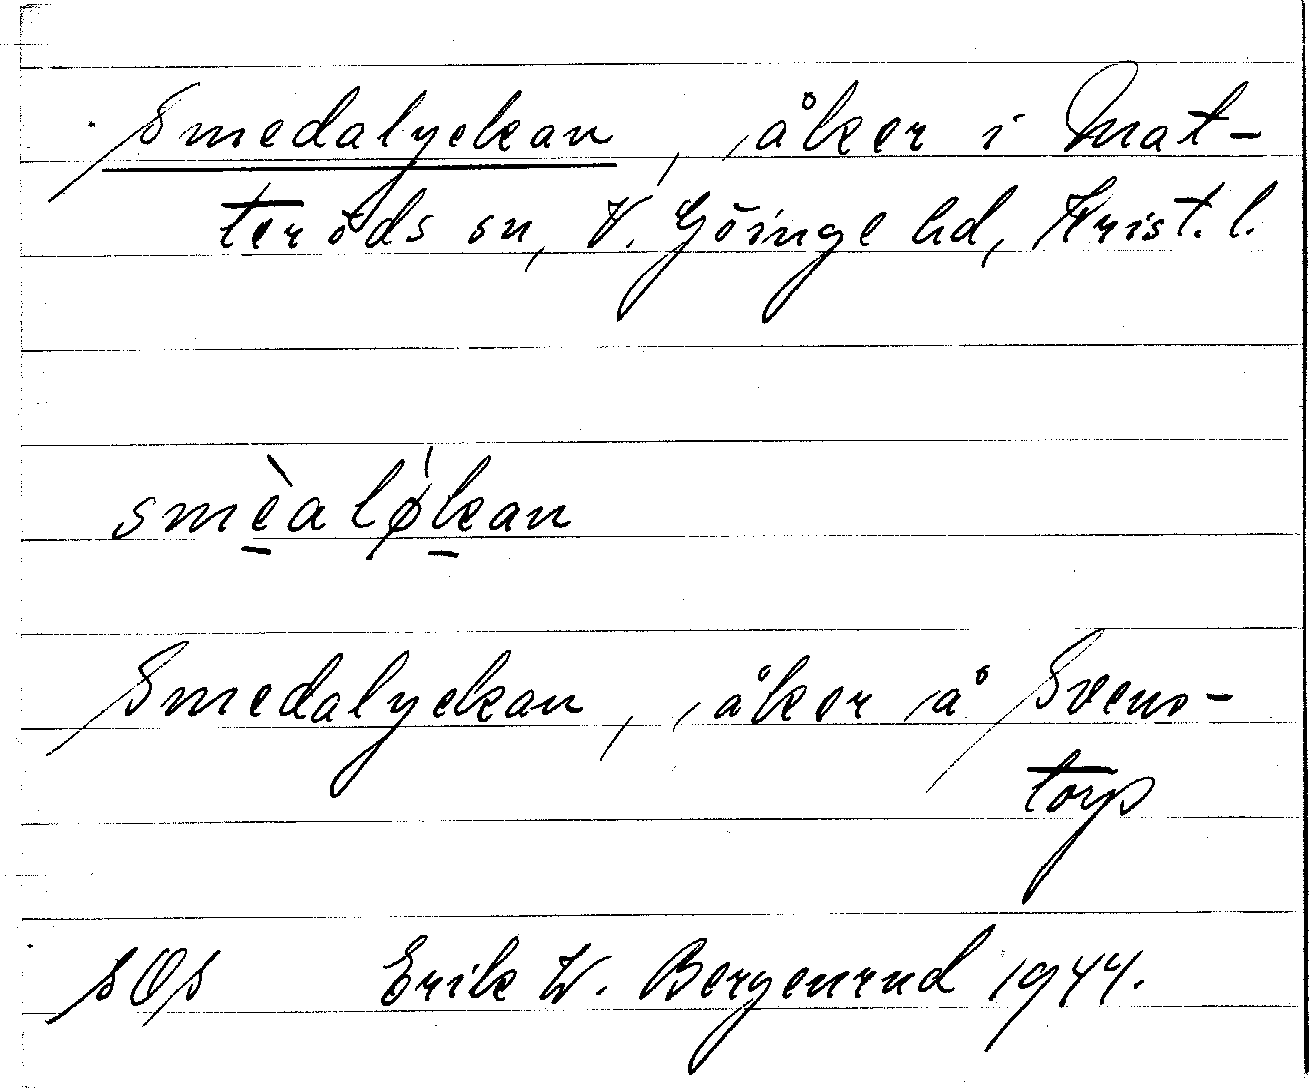 Smedalyckan, åker i Mat-
teröds sn, V. Göinge hd, Krist. l.
smèaløkan
Smedalyckan, åker å Svens-
torp
Erik W. Bergenrud 1944.